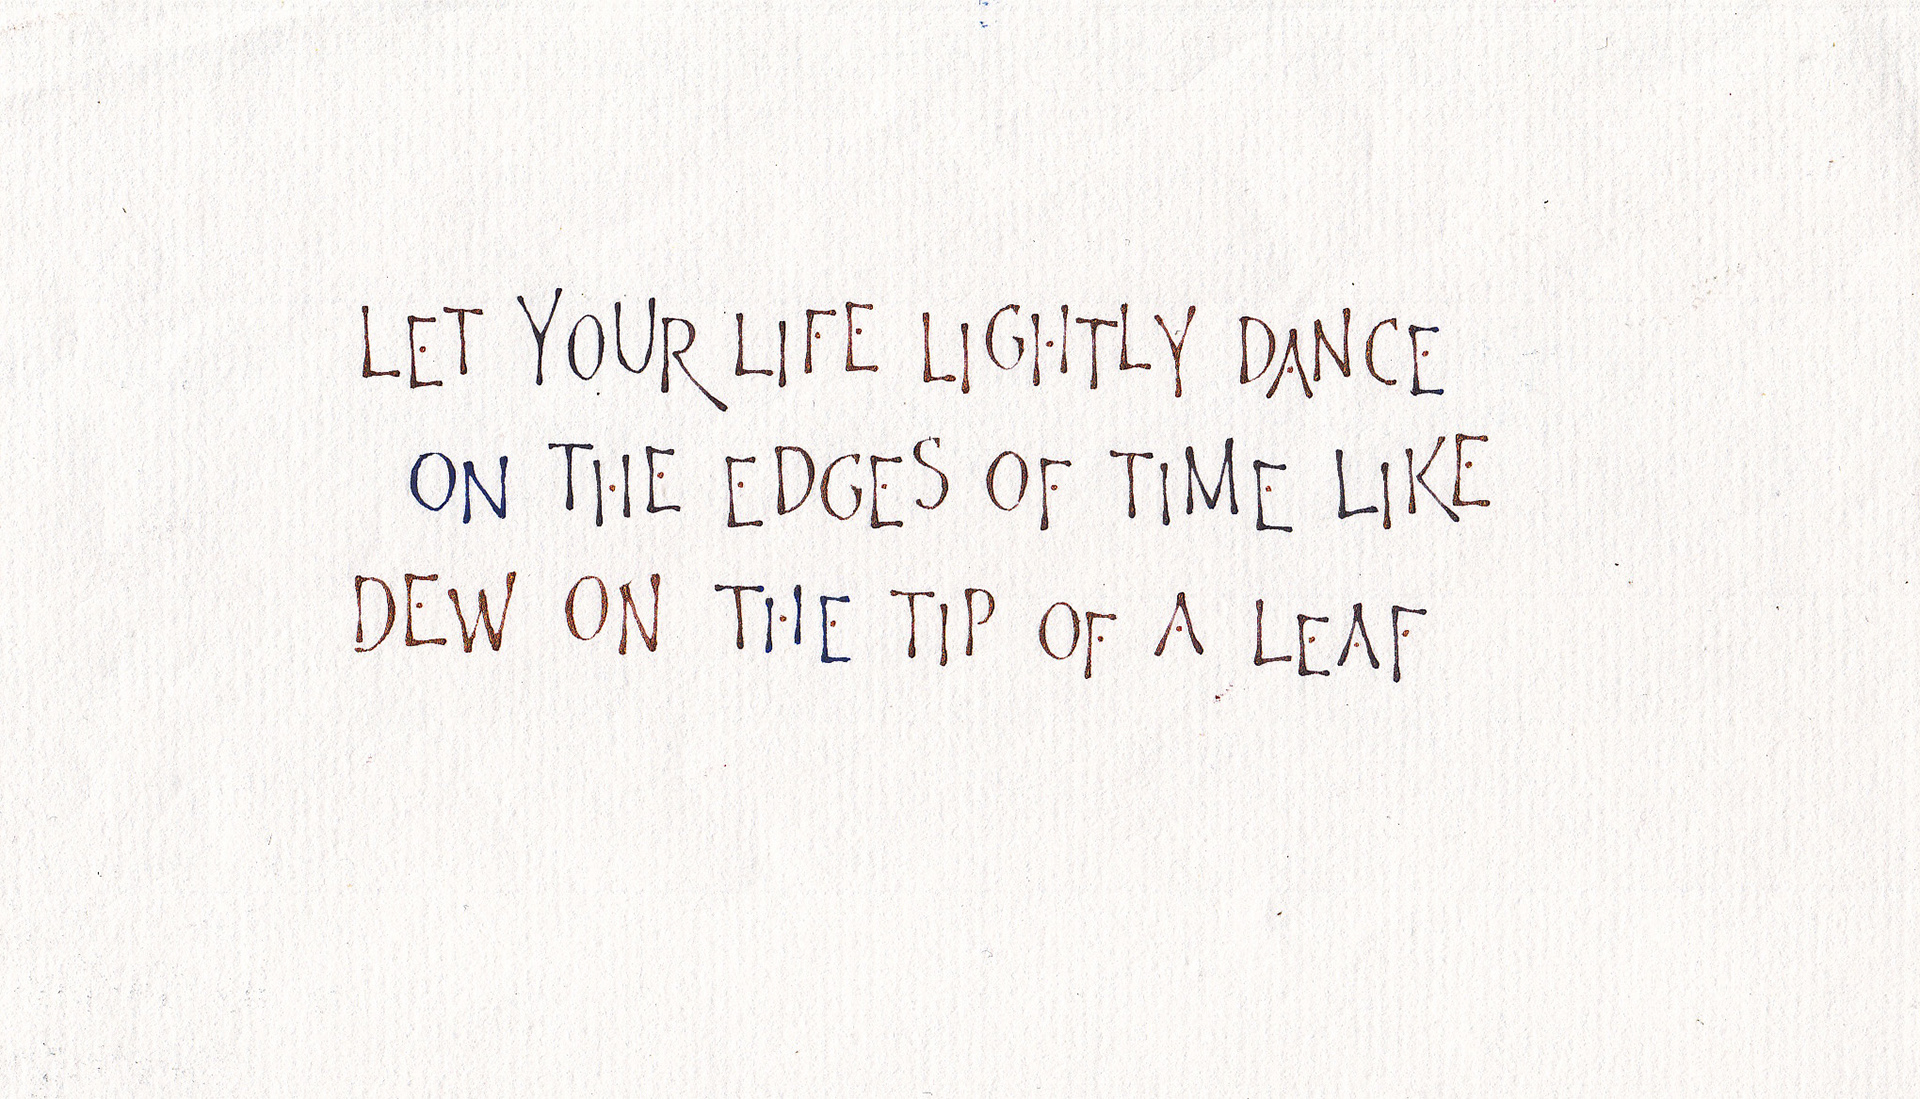 LET YOUR LIFE LIGHTLY DANCE
ON THE EDGES OF TIME LIKE
DEW ON THE TIP OF A LEAF